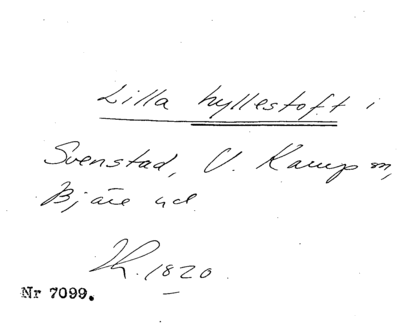 Lilla hyllestoft i
Svenstad, V. Karup sn,
Bjäre hd
Th. 1820.
Nr 7099.